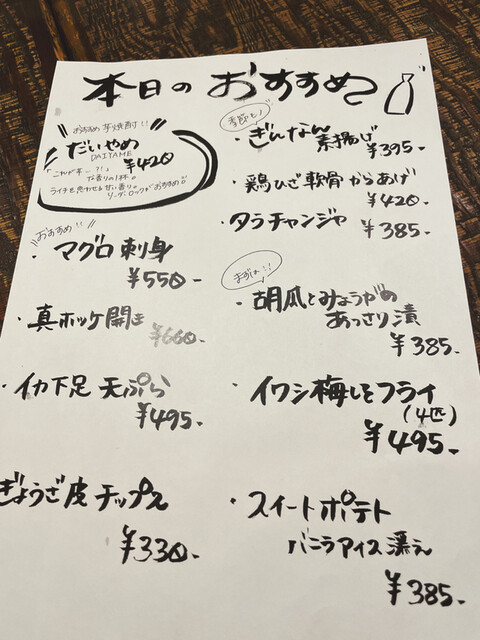 本日のおすすめ
おすすめ 芋焼酎!!
だいやめ
DAIYAME ¥420
「これが芋ー?!」
な香りの1杯。
ライチを思わせる甘い香り。
ソーダ、ロックがおすすめ
おすすめ!!
・マグロ刺身
¥550-
・真ホッケ開き
¥660-
・イカ下足天ぷら
¥495-
ぎょうざ皮チップス
¥330-
季節モノ
・ぎんなん素揚げ
¥395-
・鶏ひざ軟骨からあげ
¥420-
・タラチャンジャ ¥385-
まずは!!
・胡瓜とみょうがの
あっさり漬
¥385-
・イワシ梅しそフライ
(4匹)
¥495-
・スイートポテト
バニラアイス添え
¥385-